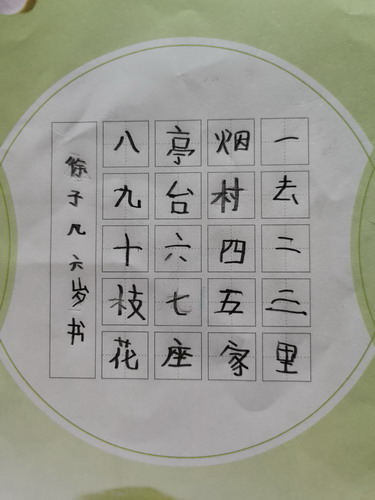 一去二三里
烟村四五家
亭台六七座
八九十枝花
徐子凡六岁书